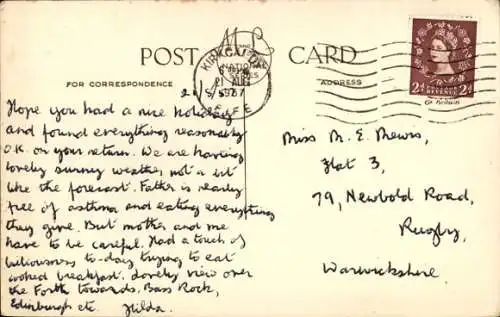 M L
POST CARD
FOR CORRESPONDENCE
ADDRESS
KIRKCALDY
21 AUG
FIFE
2d 2d
REVENUE
Hope you had a nice holiday
and found everything reasonably
O.K. on your return. We are having
lovely sunny weather, not a bit
like the forecast. Father is nearly
free of asthma and eating everything
they give. But mother and me
have to be careful. Had a touch of
biliousness to-day trying to eat
cooked breakfast. Lovely view over
the Forth towards Bass Rock,
Edinburgh etc. Hilda.
Miss M. E. Mews,
Flat 3,
79, Newbold Road,
Rugby,
Warwickshire